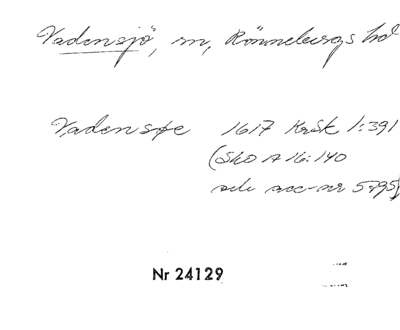 Vadensjö, sn, Rönnebergs hd
Vadensøe 1617 KrSk 1:391
(SkO A 16:140
acc-nr 5795)
Nr 24129